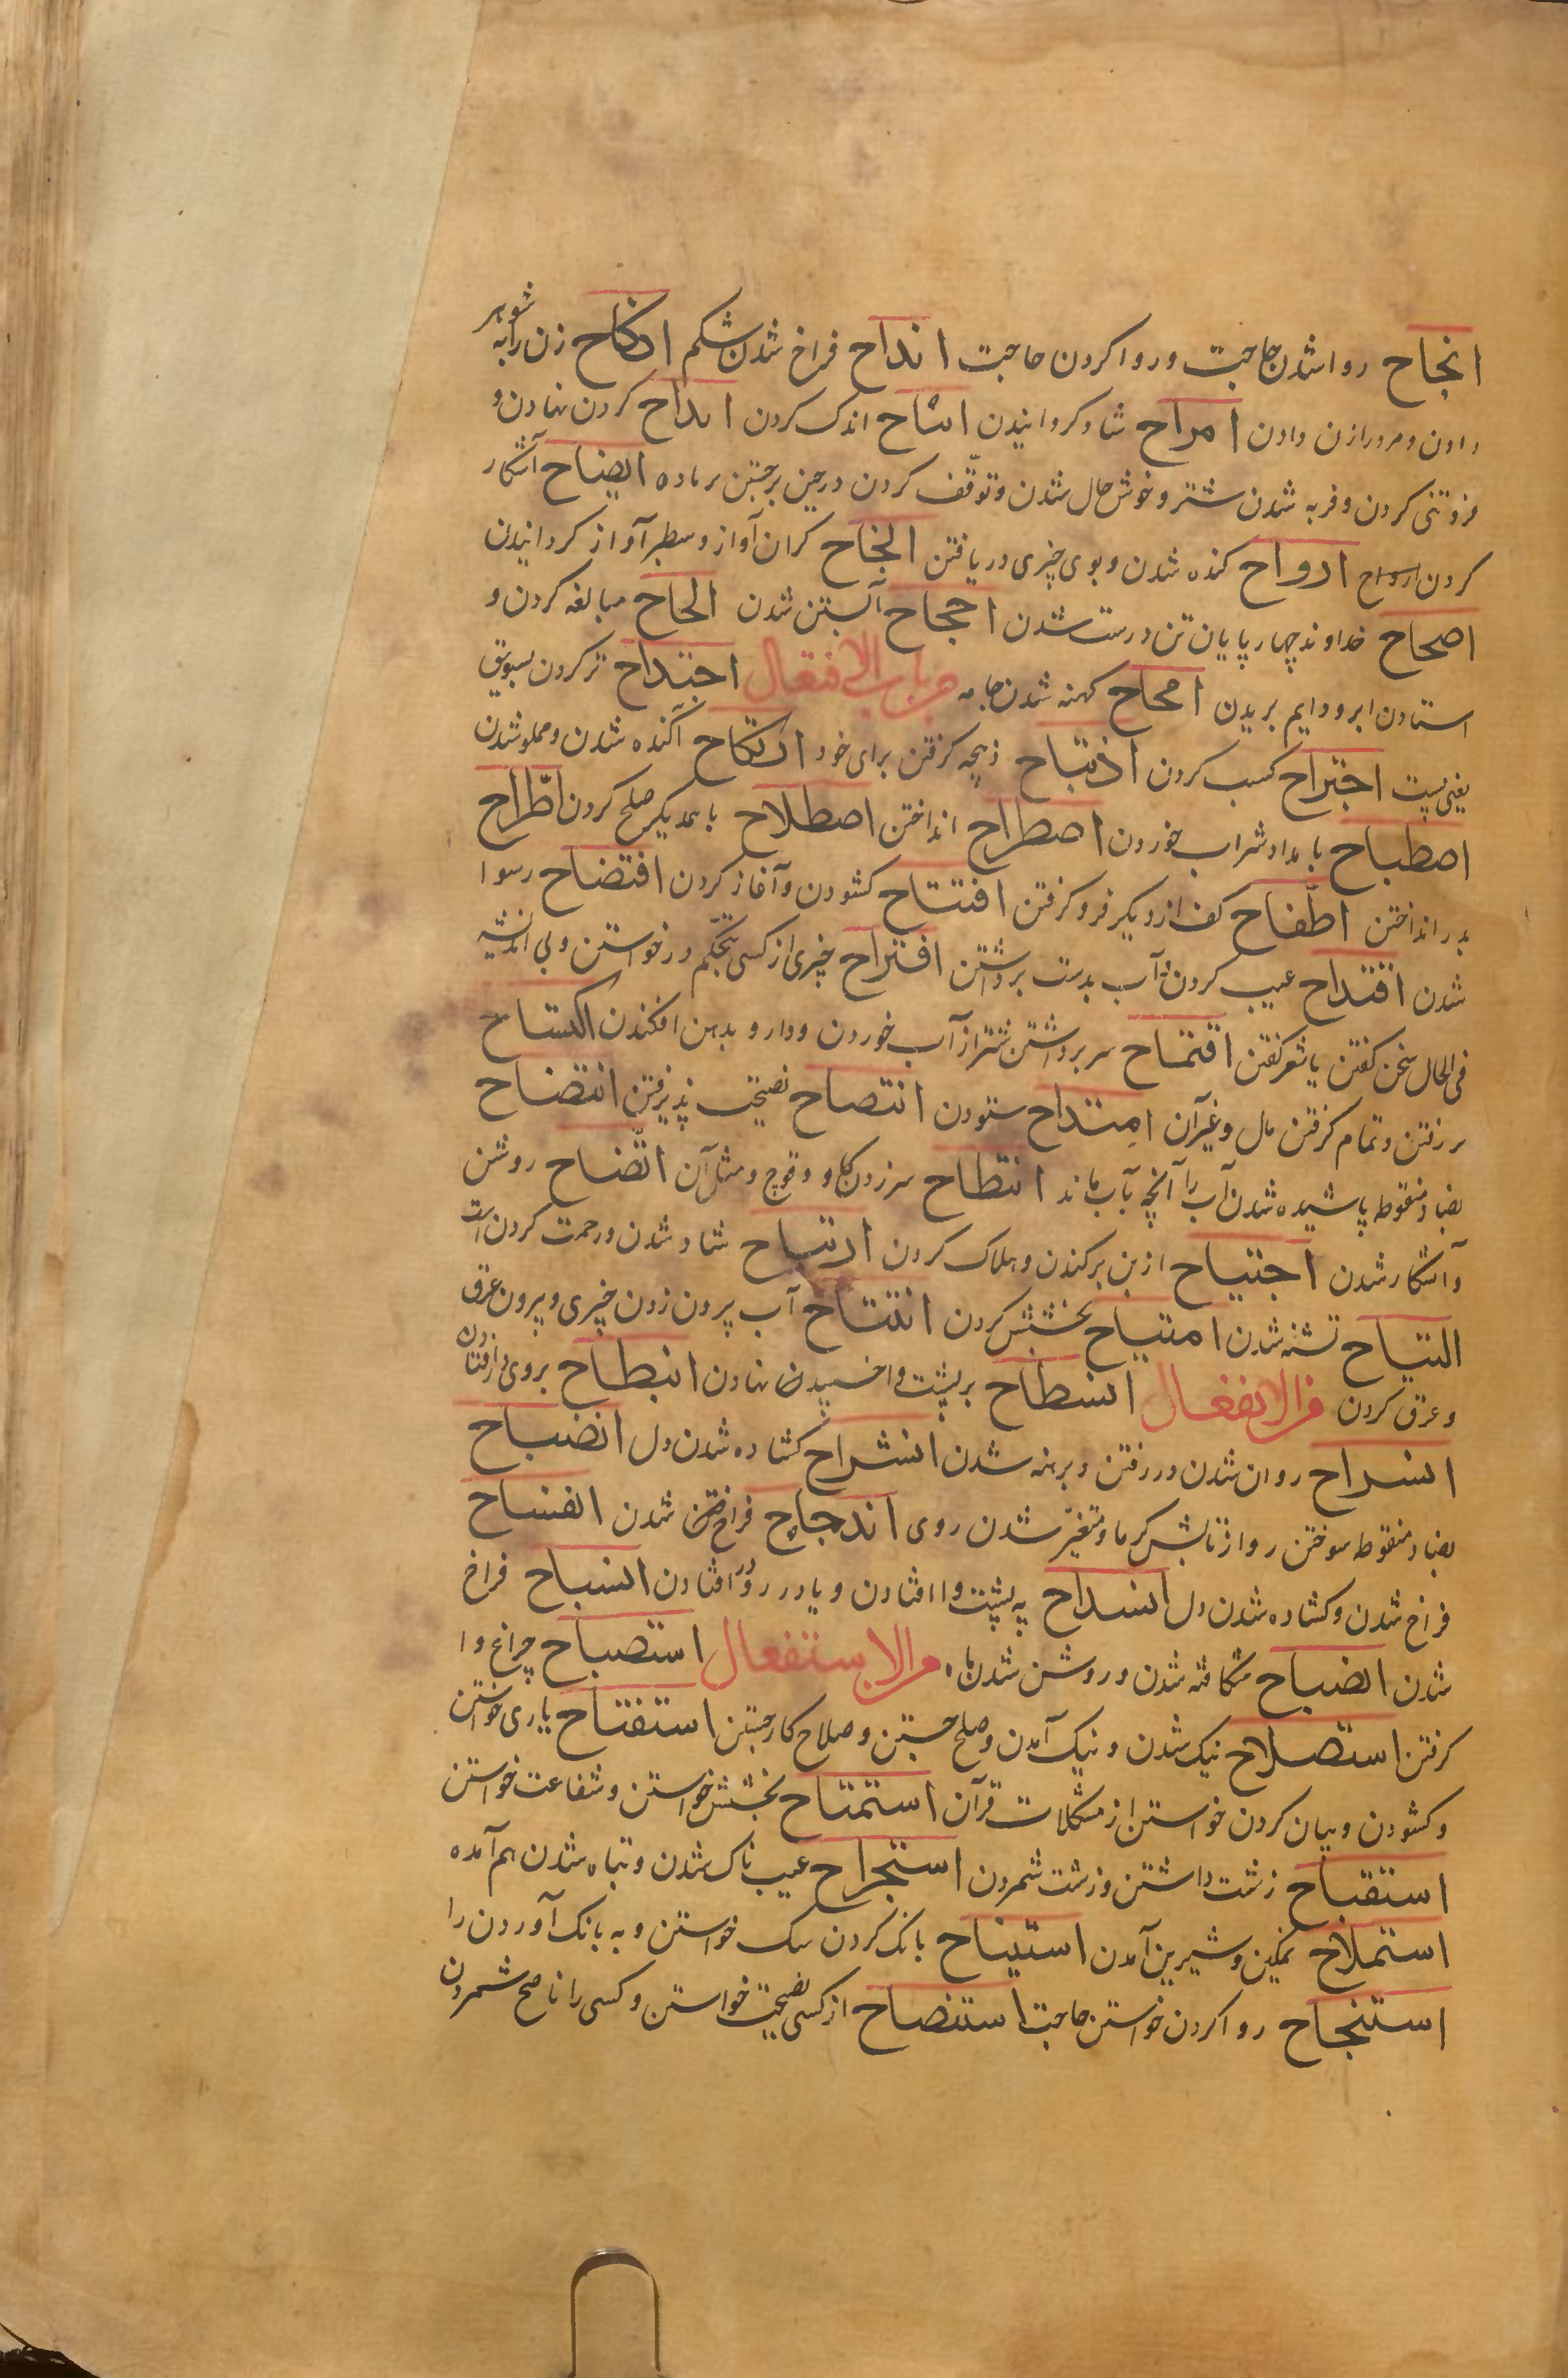 انجاح روا شدن حاجت و روا کردن حاجت انداح فراخ شدن شکم انکاح زن را به شوهر
دادن و مرد را زن دادن امراح شاد کردانیدن اشاح اندک کردن ابداح کردن نهادن و
فروتنی کردن و فربه شدن شتر و خوش حال شدن و توقف کردن در حین برجستن بر ماده ایضاح آشکار
کردن ارواح کنده شدن و بوی چیزی دریافتن الخاح کران آواز و سطبر آواز کردانیدن
اصحاح خداوند چهارپایان تن درست شدن احجاح آبستن شدن الحاح مبالغه کردن و
استادن ابر و دایم بریدن امحاح کهنه شدن جامه من باب الافتعال اجتداح تر کردن بسویق
یعنی پست اجتراح کسب کردن اذتباح ذبیحه کرفتن برای خود ارتکاح آکنده شدن و مملو شدن
اصطباح بامداد شراب خوردن اصطراح انداختن اصطلاح با همدیکر صلح کردن اطّراح
بدر انداختن اطّفاح کف از دیکر فرو کرفتن افتتاح کشودن و آغاز کردن افتضاح رسوا
شدن اقتداح عیب کردن و آب بدست برداشتن اقتراح چیزی از کسی بتحکّم درخواستن و بی اندیشه
فی الحال سخن کفتن یا شعر کفتن اقتماح سر برداشتن شتر از آب خوردن و دارو بدهن افکندن اکتساح
بر رفتن و تمام کرفتن مال و غیر آن امتداح ستودن انتصاح نصیحت پذیرفتن انتضاح
بضاد منقوطه پاشیده شدن آب را آنچه بآب ماند انتطاح سر زدن کاو و قوچ و مثل آن اتّضاح روشن
و آشکار شدن اجتیاح از بن برکندن و هلاک کردن ارتیاح شاد شدن و رحمت کردن است
التیاح تشنه شدن امتیاح بخشش کردن انتتاح آب بیرون زدن چیزی و بیرون عرق زدن
و عرق کردن من الانفعال انسطاح بر پشت وا خسپیدن نهادن انبطاح بروی در افتادن
انسراح روان شدن و در رفتن و برهنه شدن انشراح کشاده شدن دل انضباح
بضاد منقوطه سوختن رو از تابش کرما و متغیّر شدن روی اندجاح فراخ شدن انفساح
فراخ شدن و کشاده شدن دل انسداح به پشت وا افتادن و یا در رو در افتادن انسیاح فراخ
شدن انضیاح شکافته شدن و روشن شدن ماه من الاستفعال استصباح چراغ وا
کرفتن استصلاح نیک شدن و نیک آمدن و صلح جستن و صلاح کار جستن استفتاح یاری خواستن
و کشودن و بیان کردن خواستن از مشکلات قرآن استمتاح بخشش خواستن و شفاعت خواستن
استقباح زشت داشتن و زشت شمردن استجراح عیب ناک شدن و تباه شدن هم آمده
استملاح نمکین و شیرین آمدن استیناح بانک کردن سک خواستن و به بانک آوردن را
استنجاح روا کردن خواستن حاجت استنصاح از کسی نصیحت خواستن و کسی را ناصح شمردن